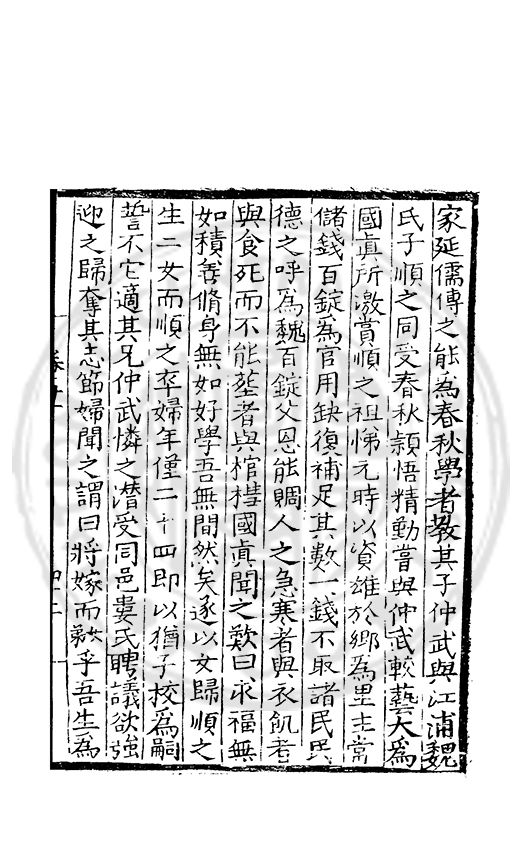 家延儒傳之能為春秋學者教其子仲武與江浦魏
氏子順之同受春秋頴悟精動嘗與仲武較藝大為
國眞所激賞順之祖悌元時以資雄於鄉為里主常
儲錢百錠為官用缺復補足其數一錢不取諸民民
德之呼為魏百錠父恩能賙人之急寒者與衣飢者
與食死而不能塟者與棺槥國眞聞之歎曰求福無
如積善脩身無如好學吾無間然矣遂以女歸順之
生二女而順之卒婦年僅二十四即以猶子校為嗣
誓不它適其兄仲武憐之潛受同邑婁氏聘議欲強
迎之歸奪其志節婦聞之謂曰將嫁而敎乎吾生為
卷五
四十二